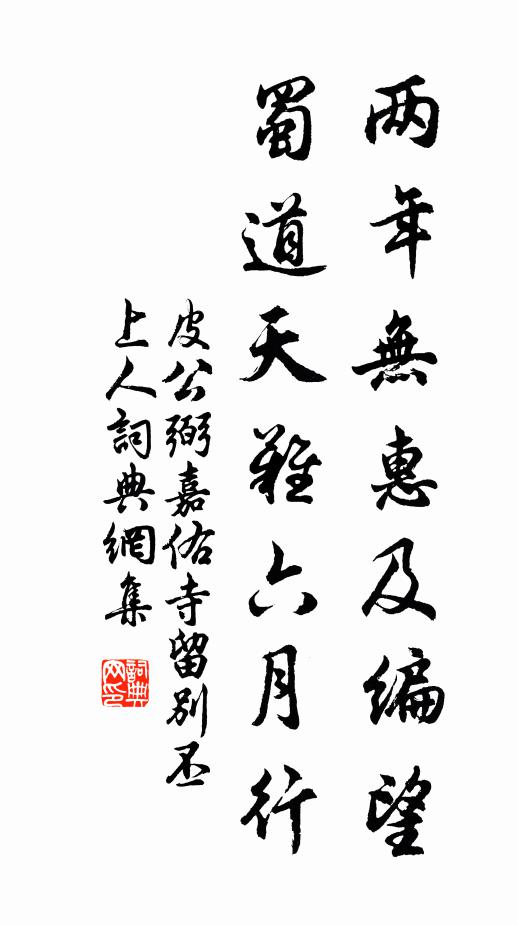 两年無惠及編望
蜀道天難六月行
皮公弼嘉佑寺留別丕
上人詞典網集
詞典网印